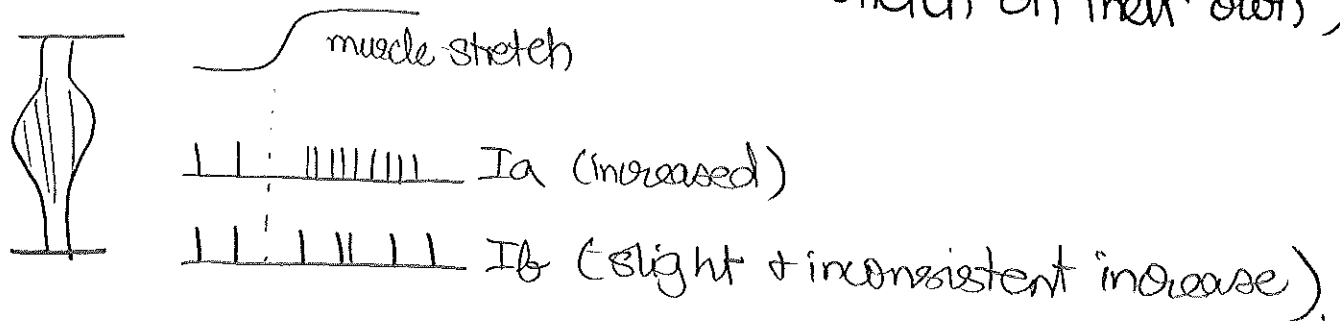 on their own,
muscle stretch
Ia (increased)
Ib (slight + inconsistent increase).